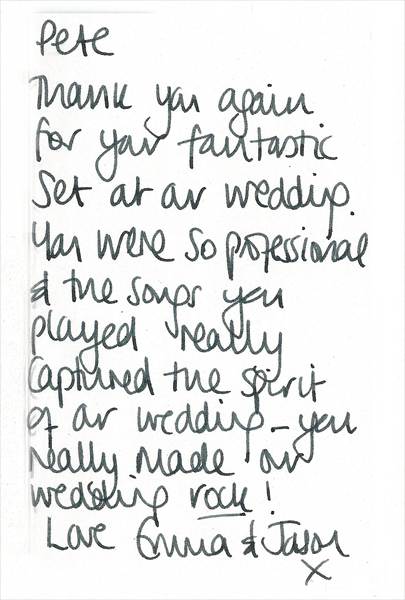 Pete
Thank you again
for your fantastic
set at our wedding.
You were so professional
& the songs you
played really
captured the spirit
of our wedding - you
really made our
wedding rock!
Love Emma & Jason
X